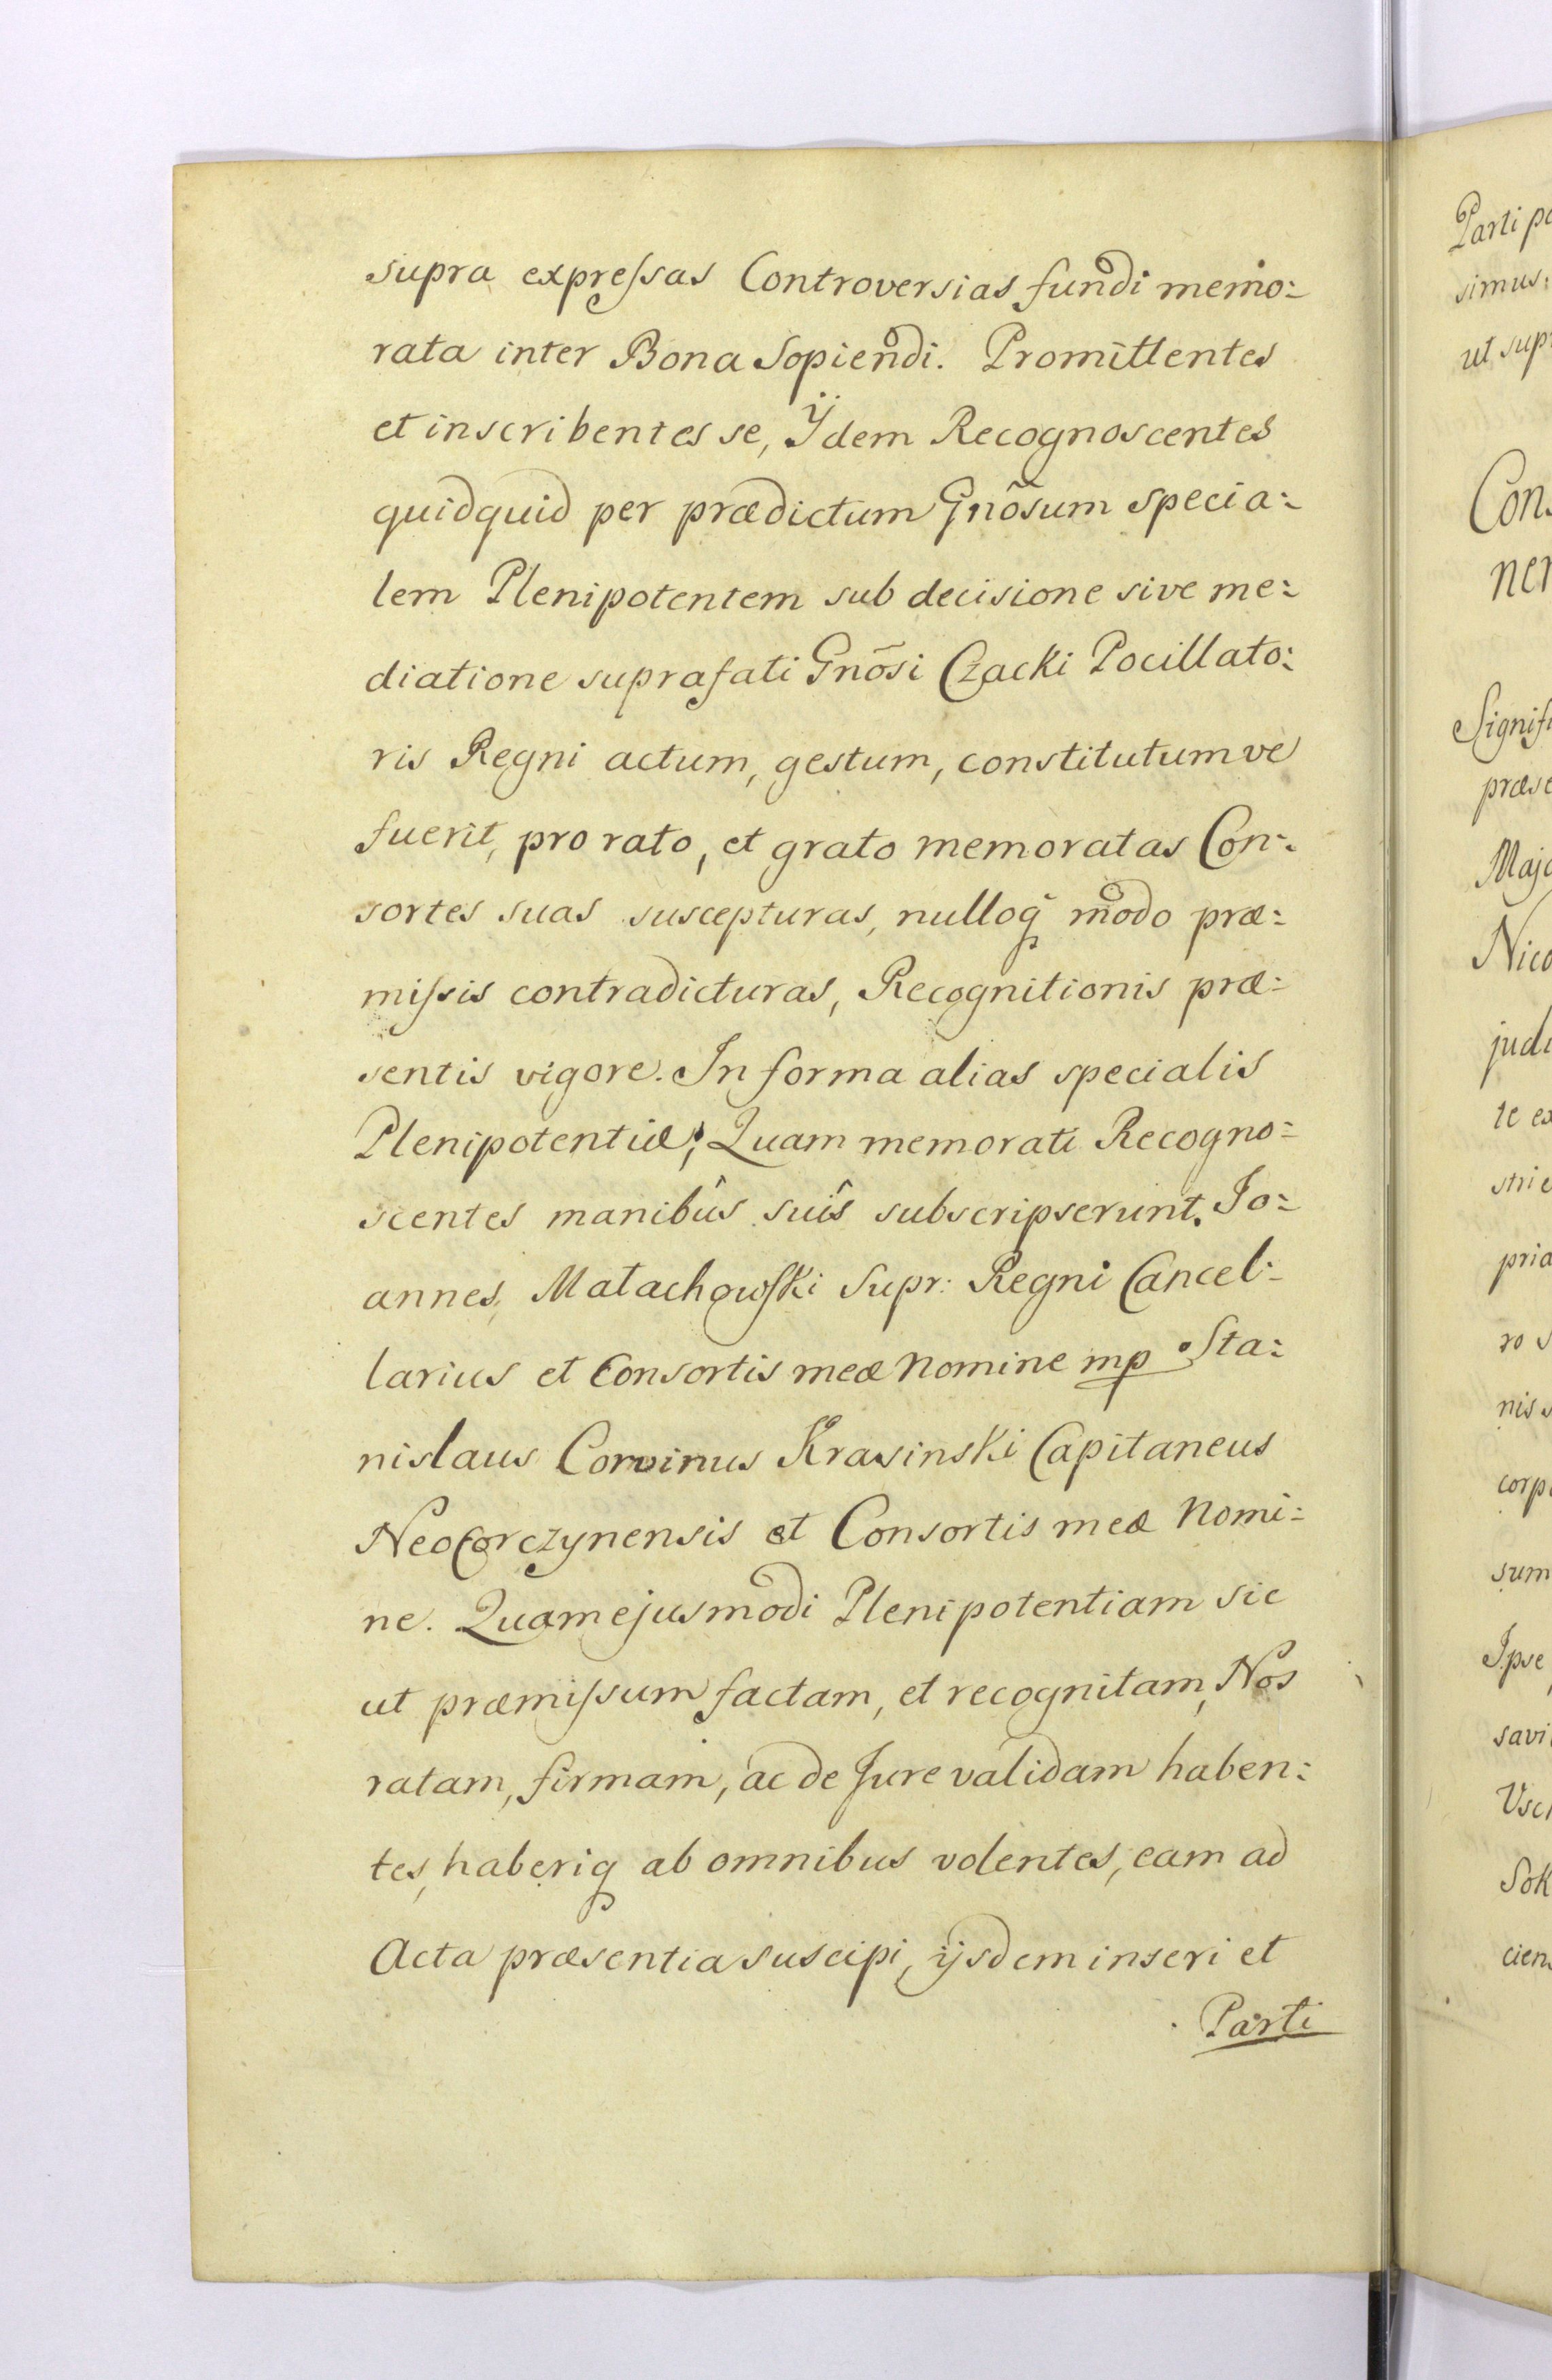 supra expreſsas Controversias fundi memo:
rata inter Bona Sopiendi. Promittentes
et inscribentes se, Ÿdem Recognoscentes
quidquid per prædictum Gnõsum specia:
lem Plenipotentem sub decisione sive me:
diatione suprafati Gnõsi Czacki Pocillato:
ris Regni actum, gestum, constitutumve
fuerit, pro rato, et grato memoratas Con:
sortes suas suscepturas, nulloq̃ modo præ:
miſsis contradicturas, Recognitionis præ:
sentis vigore. In forma alias specialis
Plenipotentiæ; Quam memorati Recogno:
scentes manibûs suîs subscripserunt. Jo:
annes, Małachowſki Supr: Regni Cancel:
larius et Consortis meæ nomine mp Sta:
nislaus Corvinus Krasinski Capitaneus
NeoCorczynensis et Consortis meæ Nomi:
ne. Quamejusmodi Plenipotentiam sic
ut præmiſsum factam, et recognitam, Nos
ratam, firmam, ac de Jure validam haben:
tes, haberiq ab omnibus volentes, eam ad
Acta præsentia suscipi, ijsdem inseri et
Parti
Parti
simus:
Con
præs
judi
pria
sum
Ipse